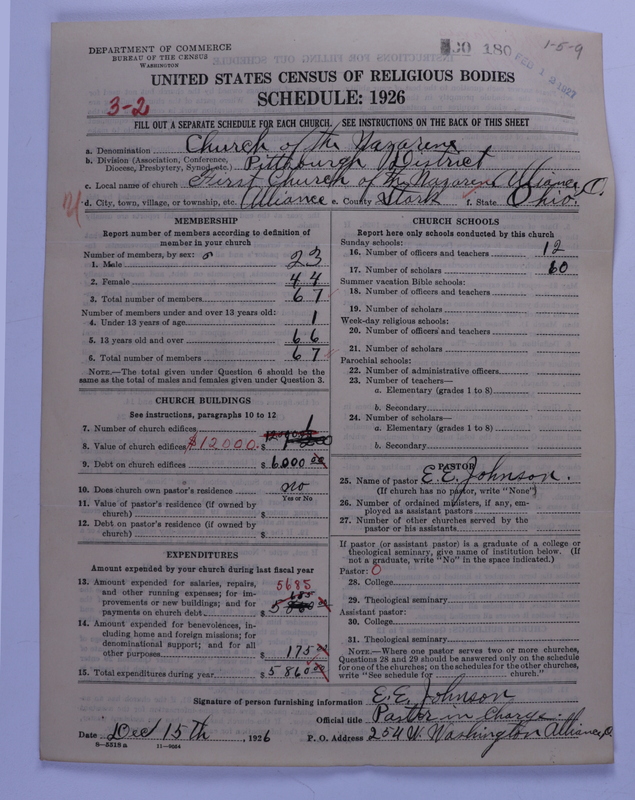 DEPARTMENT OF COMMERCE
BUREAU OF THE CENSUS
WASHINGTON
180
1-5-9
FEB 12 1927
UNITED STATES CENSUS OF RELIGIOUS BODIES
SCHEDULE: 1926
3-2
FILL OUT A SEPARATE SCHEDULE FOR EACH CHURCH. SEE INSTRUCTIONS ON THE BACK OF THIS SHEET
a. Denomination Church of the Nazarene
b. Division (Association, Conference, Diocese, Presbytery, Synod, etc.) Pittsburgh District
c. Local name of church First Church of the Nazarene Alliance, O.
d. City, town, village, or township, etc. Alliance e. County Stark f. State Ohio.
MEMBERSHIP
Report number of members according to definition of
member in your church
Number of members, by sex:
1. Male 23
2. Female 44
3. Total number of members 67
Number of members under and over 13 years old:
4. Under 13 years of age 1
5. 13 years old and over 66
6. Total number of members 67
NOTE.—The total given under Question 6 should be the
same as the total of males and females given under Question 3.
CHURCH BUILDINGS
See instructions, paragraphs 10 to 12
7. Number of church edifices 1
8. Value of church edifices $12000. $
9. Debt on church edifices $ 6000 00
10. Does church own pastor's residence no
Yes or No
11. Value of pastor's residence (if owned by
church) $
12. Debt on pastor's residence (if owned by
church) $
EXPENDITURES
Amount expended by your church during last fiscal year
13. Amount expended for salaries, repairs,
and other running expenses; for im-
provements or new buildings; and for
payments on church debt $ 5685
14. Amount expended for benevolences, in-
cluding home and foreign missions; for
denominational support; and for all
other purposes $ 175 00
15. Total expenditures during year $ 5860 00
CHURCH SCHOOLS
Report here only schools conducted by this church
Sunday schools:
16. Number of officers and teachers 12
17. Number of scholars 60
Summer vacation Bible schools:
18. Number of officers and teachers
19. Number of scholars
Week-day religious schools:
20. Number of officers and teachers
21. Number of scholars
Parochial schools:
22. Number of administrative officers
23. Number of teachers—
a. Elementary (grades 1 to 8)
b. Secondary
24. Number of scholars—
a. Elementary (grades 1 to 8)
b. Secondary
PASTOR
25. Name of pastor E. E. Johnson.
(If church has no pastor, write "None")
26. Number of ordained ministers, if any, em-
ployed as assistant pastors
27. Number of other churches served by the
pastor or his assistants
If pastor (or assistant pastor) is a graduate of a college or
theological seminary, give name of institution below. (If
not a graduate, write "No" in the space indicated.)
Pastor: O
28. College
29. Theological seminary
Assistant pastor:
30. College
31. Theological seminary
NOTE.—Where one pastor serves two or more churches,
Questions 28 and 29 should be answered only on the schedule
for one of the churches; on the schedules for the other churches,
write "See schedule for church."
Signature of person furnishing information E. E. Johnson
Official title Pastor in Charge.
Date Dec 15th, 1926 P. O. Address 254 W. Washington Alliance, O
8—5318 a 11—9884